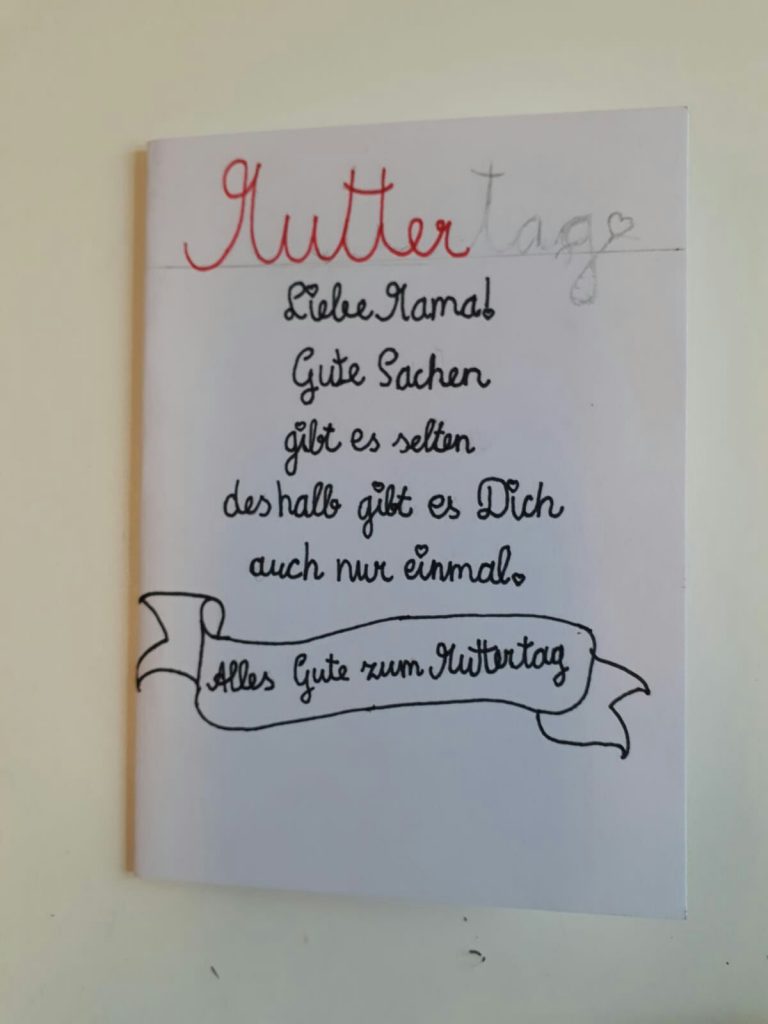 Muttertag
Liebe Mama!
Gute Sachen
gibt es selten
deshalb gibt es Dich
auch nur einmal.
Alles Gute zum Muttertag